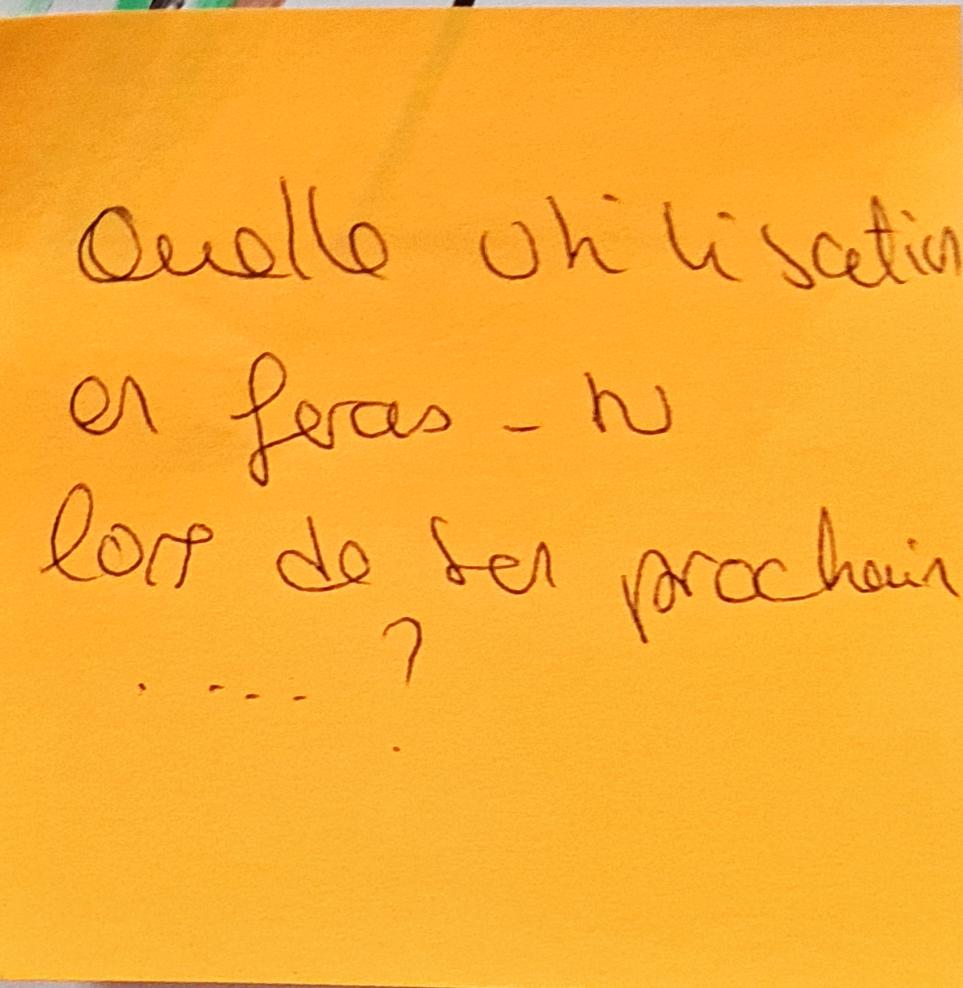 Quelle utilisation
en feras-tu
lors de ton prochain
.... ?